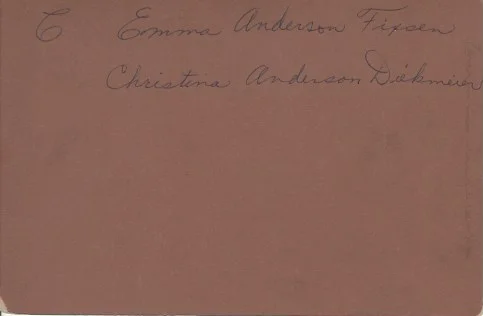 C Emma Anderson Fixsen
Christina Anderson Diekmeier